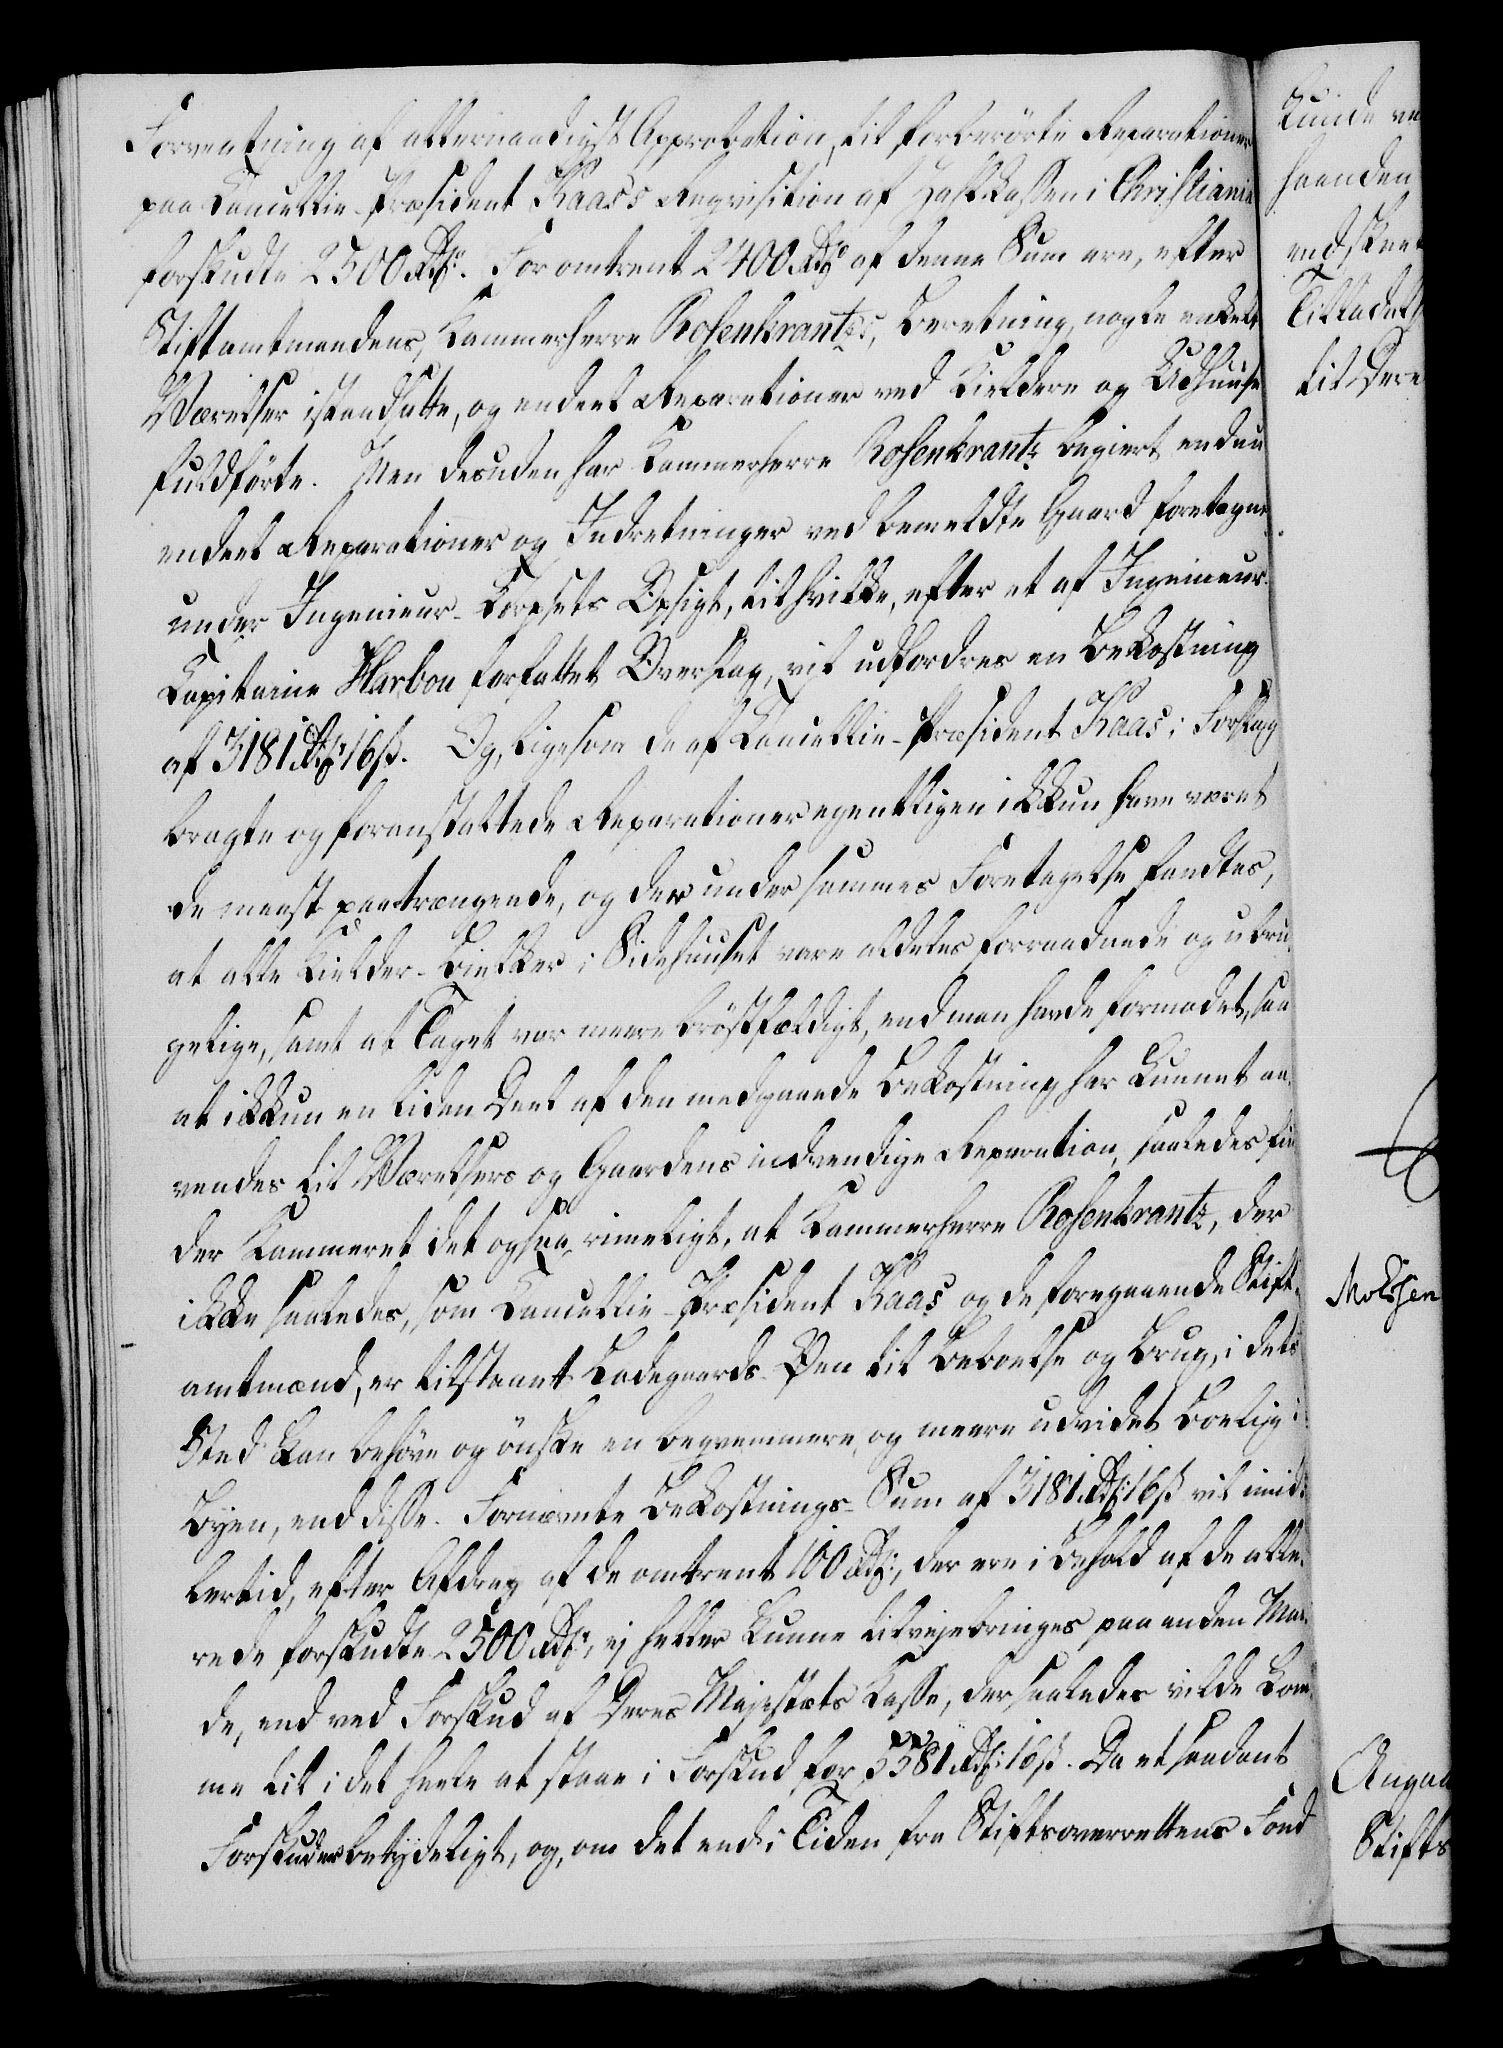 Forventning af allernaadigst Approbation, til forberörte Reparationer
paa Cancellie-Præsident Kaas's Reqvisition af Zahlkassen i Christiania
forskudte 2500 Rdr. For omtrent 2400 Rdr af denne Sum ere, efter
Stiftamtmandens, Kammerherre Rosenkrantz's, Beretning, nogle enkelte
Værelser istandsatte, og endeel Reparationer ved Kieldere og Udhuuse
fuldförte. Men desuden har Kammerherre Rosenkrantz begiert endnu
endeel Reparationer og Indretninger ved bemeldte Gaard foretagne
under Ingenieur-Corpsets Opsigt, til hvilke, efter et af Ingenieur-
Capitaine Harbou forfattet Overslag, vil udfordres en Bekostning
af 3181 Rdr 16 ß. Og, ligesom de af Cancellie-Præsident Kaas i Forslag
bragte og foranstaltede Reparationer egentligen ikkun have været
de meest paatrængende, og der under sammes Foretagelse fandtes,
at alle Kielder-Bielker i Sidehuuset vare aldeles forraadnede og ubru-
gelige, samt at Taget var meere bröstfældigt, end man havde formodet, saa
at ikkun en liden Deel af den medgaaede Bekostning har kunnet an-
vendes til Værelsers og Gaardens indvendige Reparation, saaledes fin-
der Kammeret det ogsaa rimeligt, at Kammerherre Rosenkrantz, der
ikke saaledes, som Cancellie-Præsident Kaas og de foregaaende Stift-
amtmænd, er tilstaaet Ladegaards-Öen til Beboelse og Brug, i dets
Sted kan behöve og önske en beqvemmere og meere udvidet Boelig i
Byen, end disse. Fornævnte Bekostnings-Sum af 3181 Rdr 16 ß vil imid-
lertid, efter Afdrag af de omtrent 100 Rdr, der ere i Behold af de alle-
rede forskudte 2500 Rdr, ej heller kunne tilvejebringes paa anden Maa-
de, end ved Forskud af Deres Majestæts Kasse, der saaledes vilde kom-
me til i det heele at staae i Forskud for 5581 Rdr 16 ß. Da et saadant
Forskud er betydeligt, og, om det end i Tiden fra Stiftsoverrettens Fond
kunde ve
haanden
ved skee
Tilladel
til Dere
Moessen
Angaa
Stifts